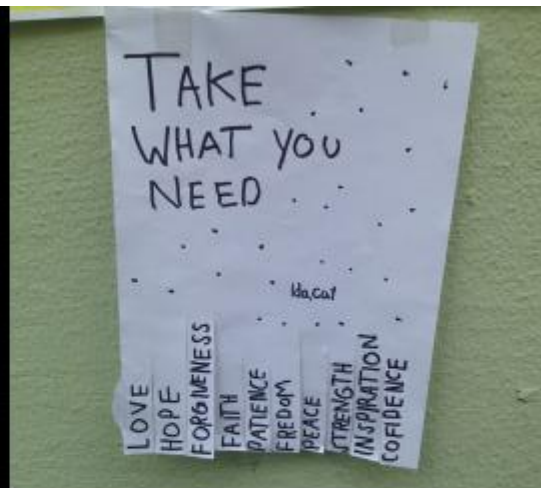 TAKE
WHAT YOU
NEED
LOVE
HOPE
FORGIVENESS
FAITH
PATIENCE
FREDOM
PEACE
STRENGTH
INSPIRATION
COFIDENCE